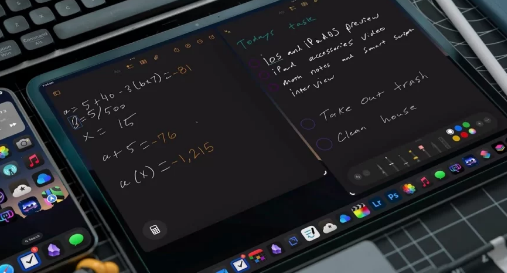 a = 5 + 40 - 3(b+7) = -81
x = 15
a + 5 = -76
a (x) = -1,215
Todays task
iOS and iPadOS preview
iPad accessories video
Math notes and Smart Script
interview
Take out trash
Clean house
Search
Lr Ps